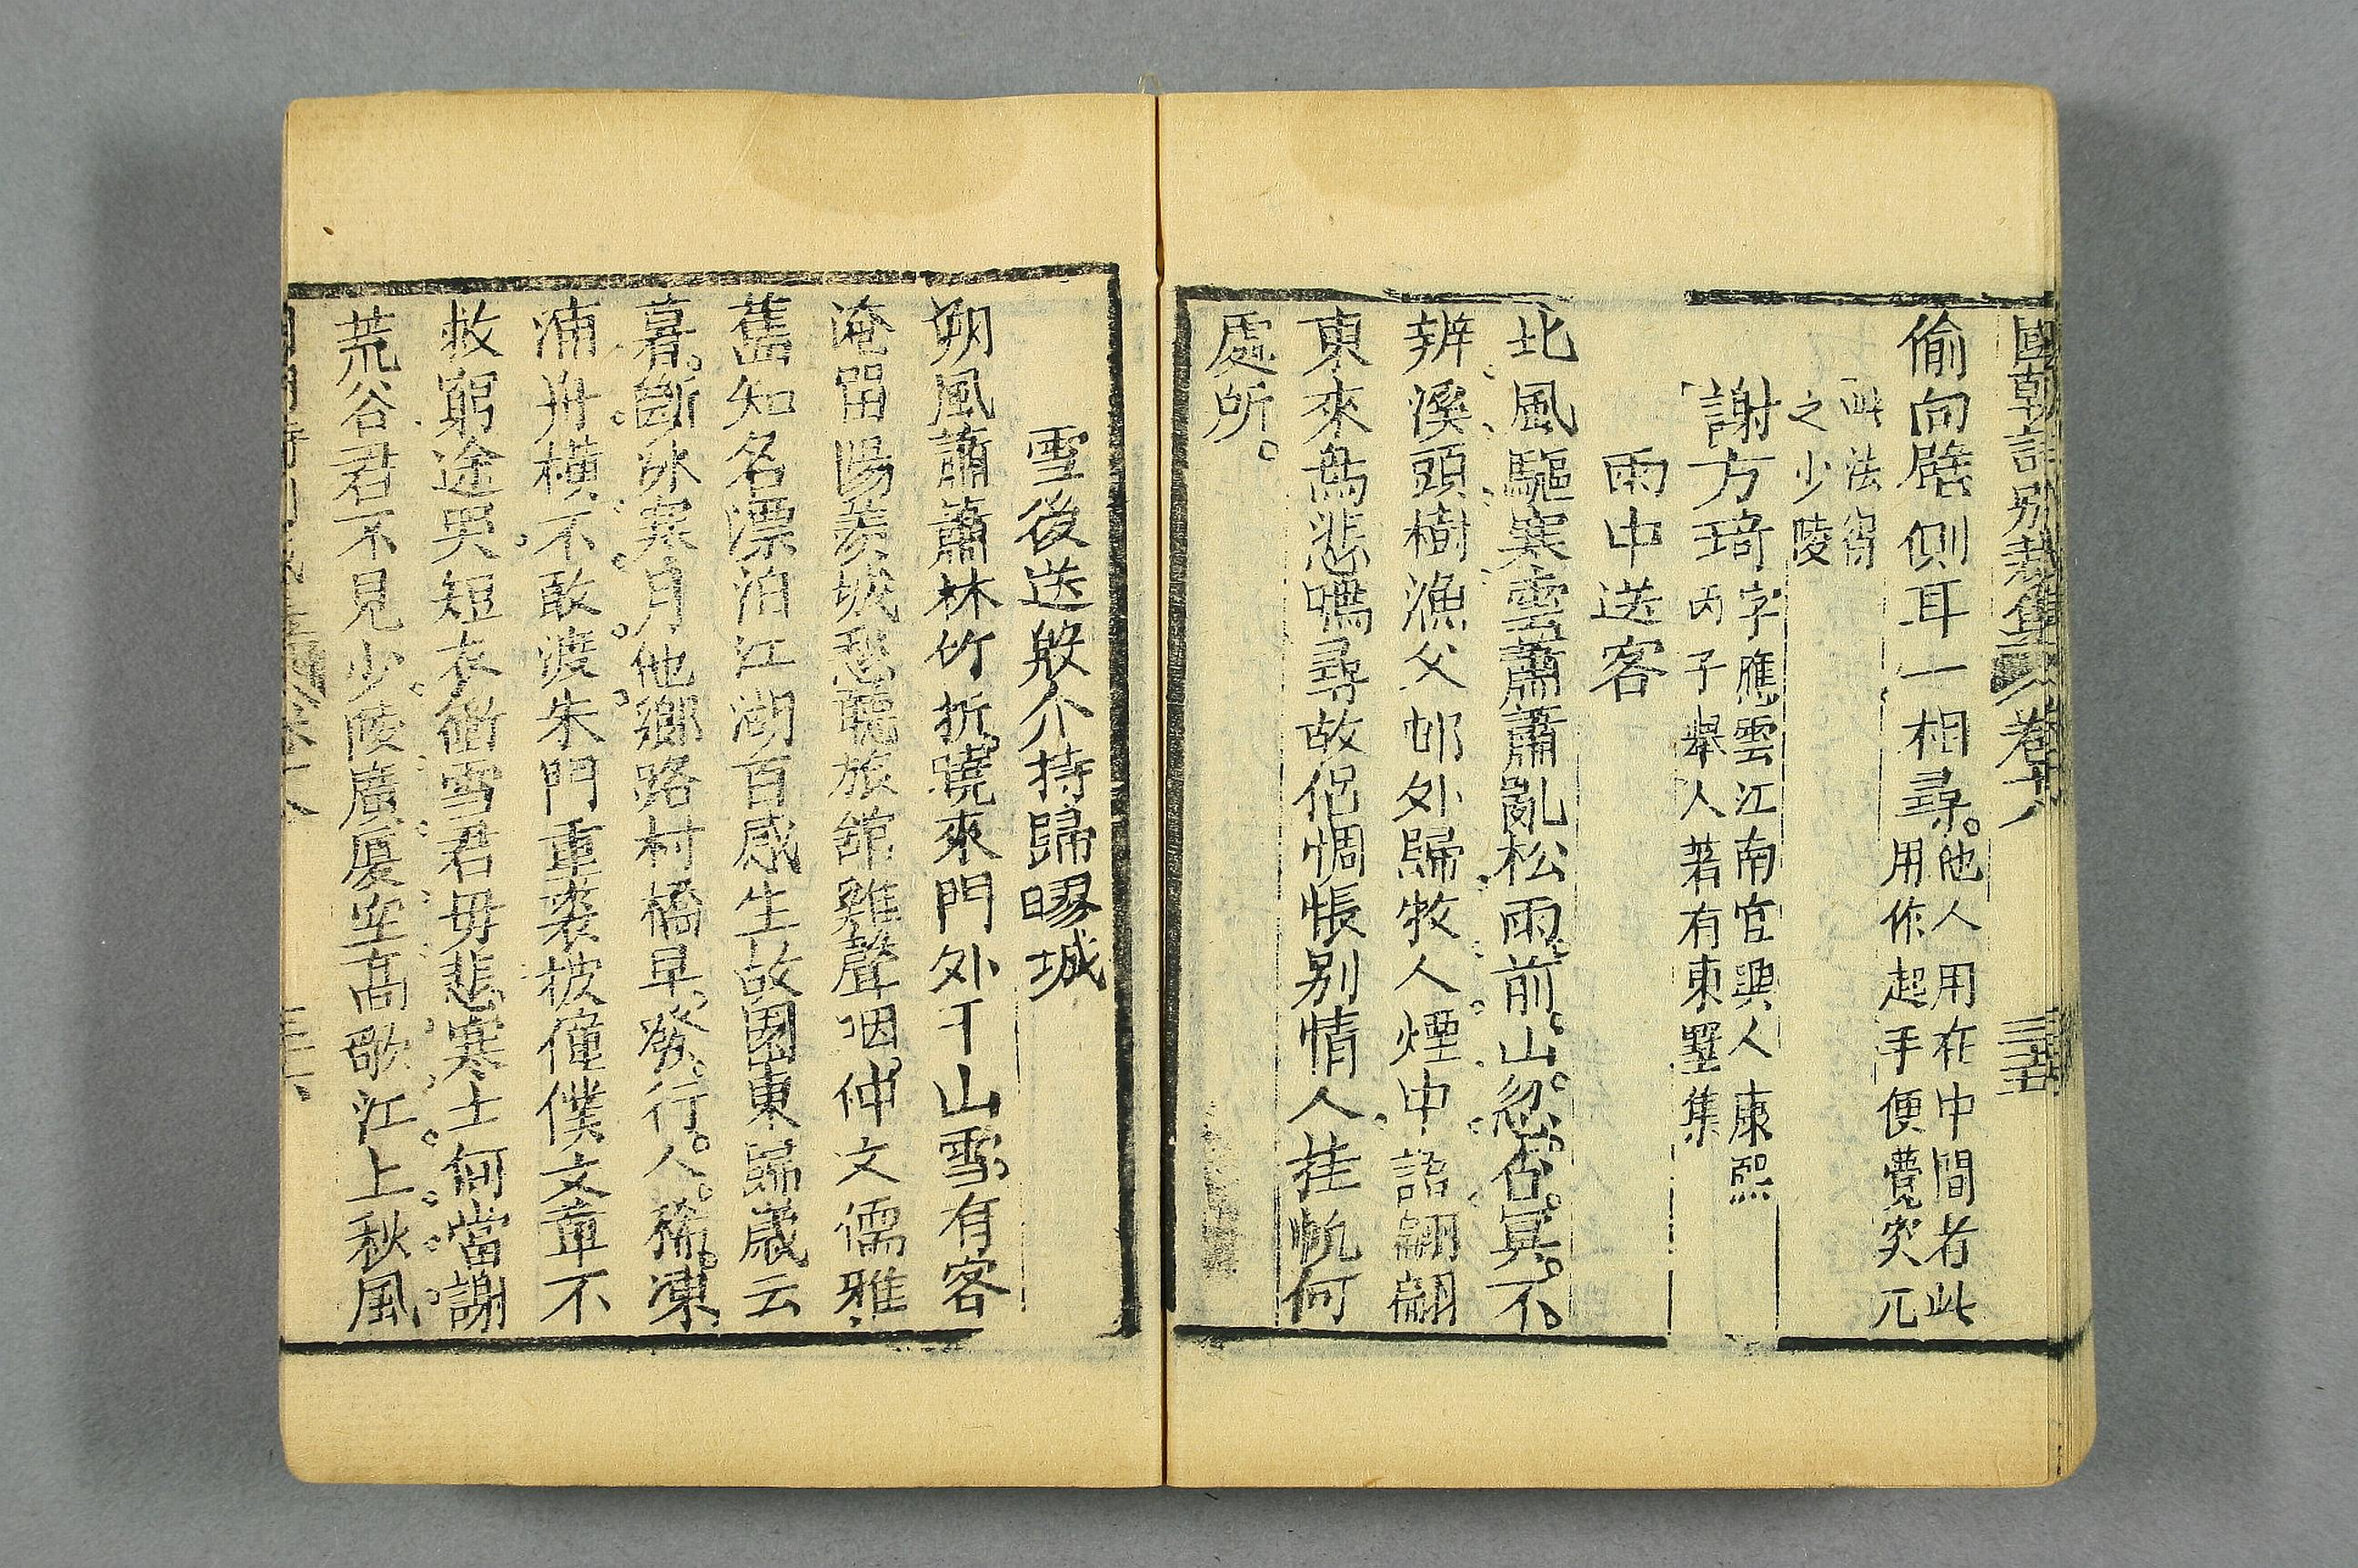 國朝詩別裁集 卷十八 三十五
偷向壁側耳一相尋他人用在中間者此
用作起手便覺突兀
此法得
之少陵
謝方琦字應雲江南宜興人康熙
丙子舉人著有東墅集
雨中送客
北風驅寒雲蕭蕭亂松雨前山忽杳冥不
辨溪頭樹漁父邨外歸牧人煙中語翩翩
東來鳥悲鳴尋故侶惆悵別情人挂帆何
處所
雪後送殷介持歸膠城
朔風蕭蕭林竹折曉來門外千山雪有客
淹留陽羨城愁聽旅館雞聲咽仲文儒雅
舊知名漂泊江湖百感生故園東歸歲云
暮斷冰寒月他鄉路村橋早發行人稀凍
浦舟橫不敢渡朱門重裘披僮僕文章不
救窮途哭短衣衝雪君毋悲寒士何當謝
荒谷君不見少陵廣廈坐高歌江上秋風